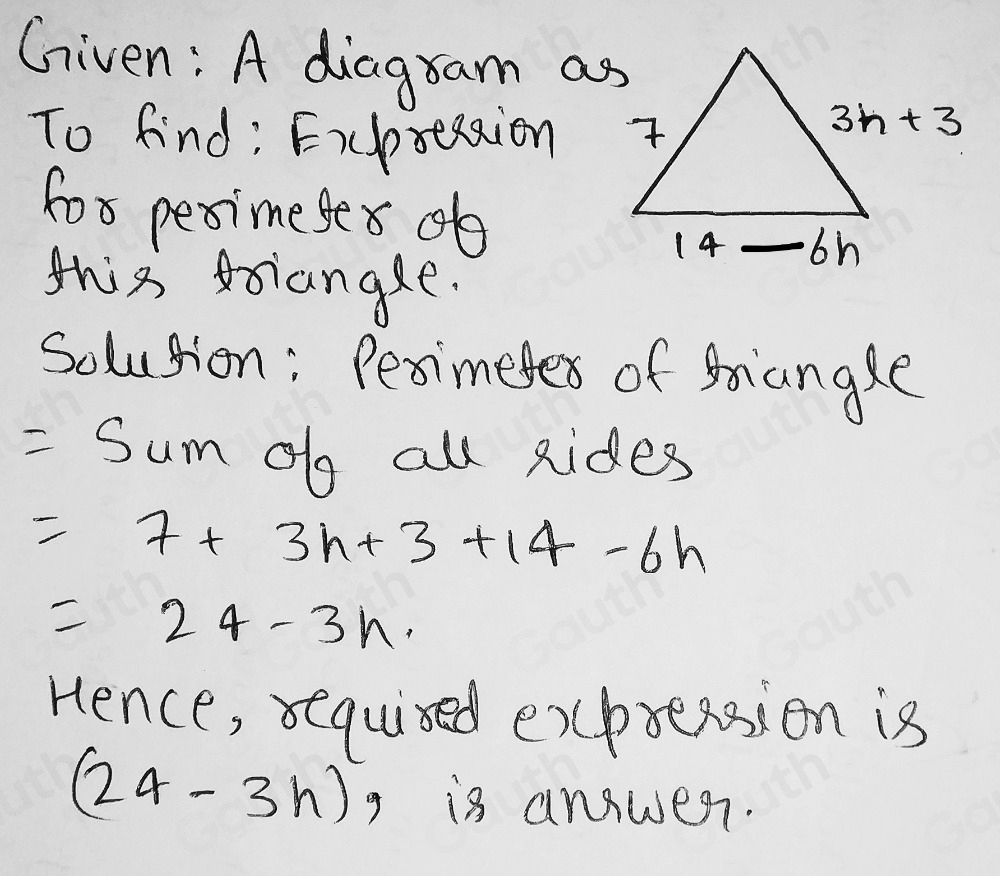 Given: A diagram as
To find: Expression
for perimeter of
this triangle.
7
3h + 3
14 — 6h
Solution: Perimeter of triangle
= Sum of all sides
= 7 + 3h + 3 + 14 - 6h
= 24 - 3h.
Hence, required expression is
(24 - 3h), is answer.
Gauth